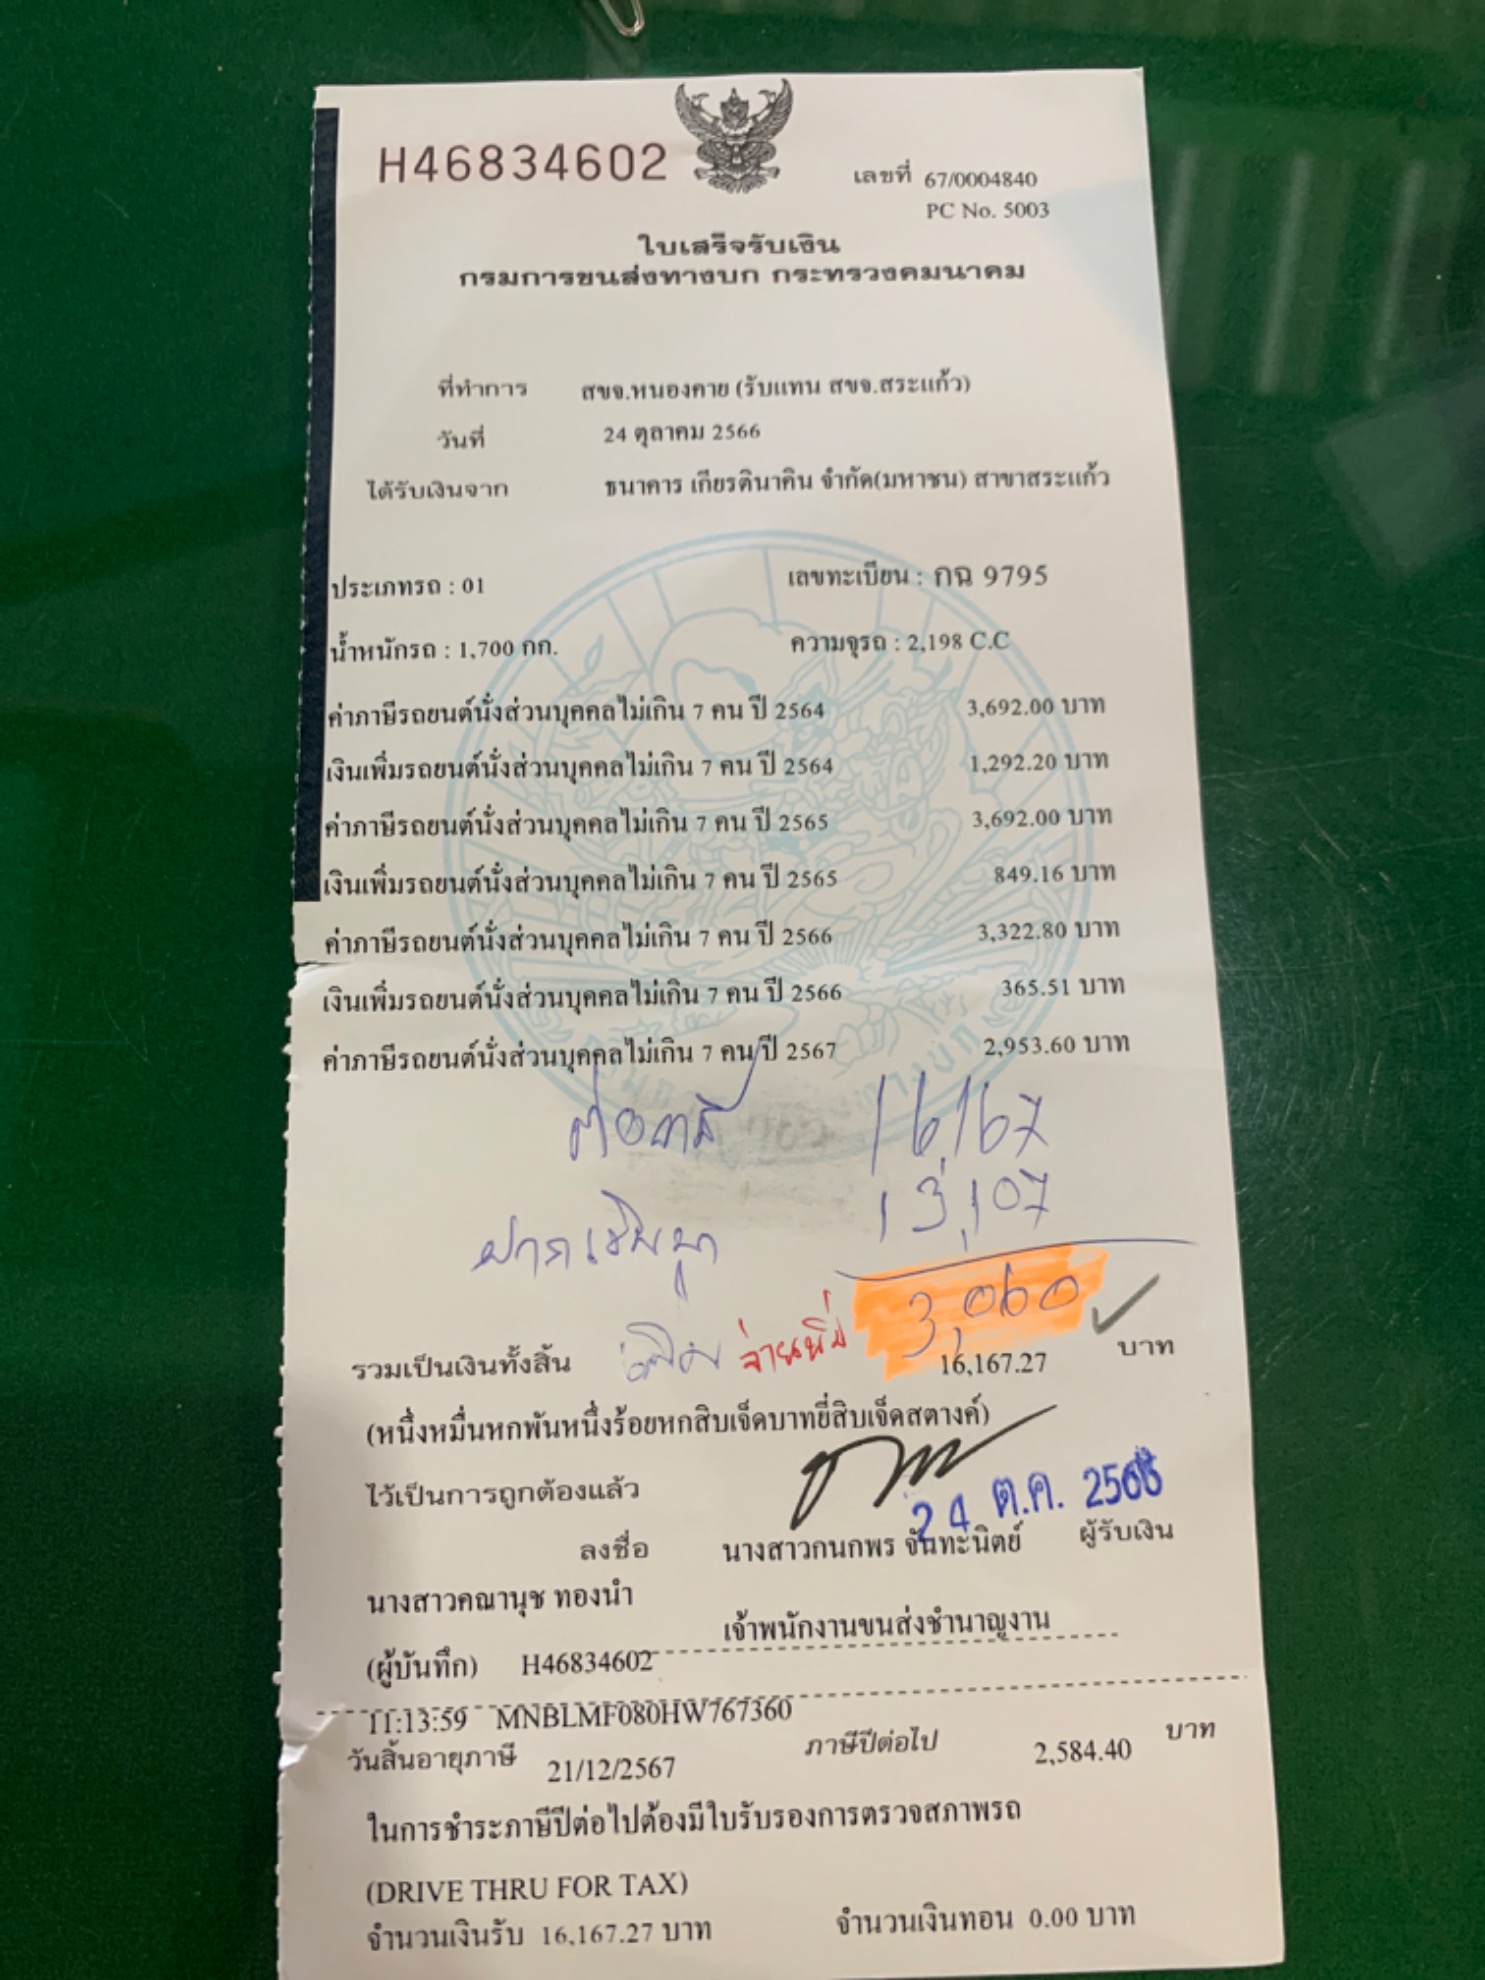 H46834602
เลขที่ 67/0004840
PC No. 5003
ใบเสร็จรับเงิน
กรมการขนส่งทางบก กระทรวงคมนาคม
ที่ทำการ สขจ.หนองคาย (รับแทน สขจ.สระแก้ว)
วันที่ 24 ตุลาคม 2566
ได้รับเงินจาก ธนาคาร เกียรตินาคิน จำกัด(มหาชน) สาขาสระแก้ว
ประเภทรถ : 01 เลขทะเบียน : กฉ 9795
น้ำหนักรถ : 1,700 กก. ความจุรถ : 2,198 C.C
ค่าภาษีรถยนต์นั่งส่วนบุคคลไม่เกิน 7 คน ปี 2564 3,692.00 บาท
เงินเพิ่มรถยนต์นั่งส่วนบุคคลไม่เกิน 7 คน ปี 2564 1,292.20 บาท
ค่าภาษีรถยนต์นั่งส่วนบุคคลไม่เกิน 7 คน ปี 2565 3,692.00 บาท
เงินเพิ่มรถยนต์นั่งส่วนบุคคลไม่เกิน 7 คน ปี 2565 849.16 บาท
ค่าภาษีรถยนต์นั่งส่วนบุคคลไม่เกิน 7 คน ปี 2566 3,322.80 บาท
เงินเพิ่มรถยนต์นั่งส่วนบุคคลไม่เกิน 7 คน ปี 2566 365.51 บาท
ค่าภาษีรถยนต์นั่งส่วนบุคคลไม่เกิน 7 คน ปี 2567 2,953.60 บาท
ต่อภาษี 16,167
13,107
จ่ายเพิ่ม 3,060
รวมเป็นเงินทั้งสิ้น 16,167.27 บาท
(หนึ่งหมื่นหกพันหนึ่งร้อยหกสิบเจ็ดบาทยี่สิบเจ็ดสตางค์)
ไว้เป็นการถูกต้องแล้ว
24 ต.ค. 2566
ลงชื่อ นางสาวกนกพร จันทะนิตย์ ผู้รับเงิน
นางสาวคณานุช ทองนำ
เจ้าพนักงานขนส่งชำนาญงาน
(ผู้บันทึก) H46834602
11:13:59 MNBLMF080HW767360
วันสิ้นอายุภาษี 21/12/2567 ภาษีปีต่อไป 2,584.40 บาท
ในการชำระภาษีปีต่อไปต้องมีใบรับรองการตรวจสภาพรถ
(DRIVE THRU FOR TAX)
จำนวนเงินรับ 16,167.27 บาท จำนวนเงินทอน 0.00 บาท